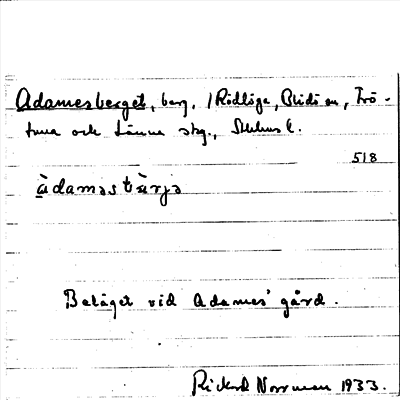 Adamesberget, berg, i Rödlöga, Blidö sn, Frö-
tuna och Länna skg., Sthlms l.
518
àdamǝsbàrjǝ
Beläget vid Adames' gård.
Rickard Norrman 1933.